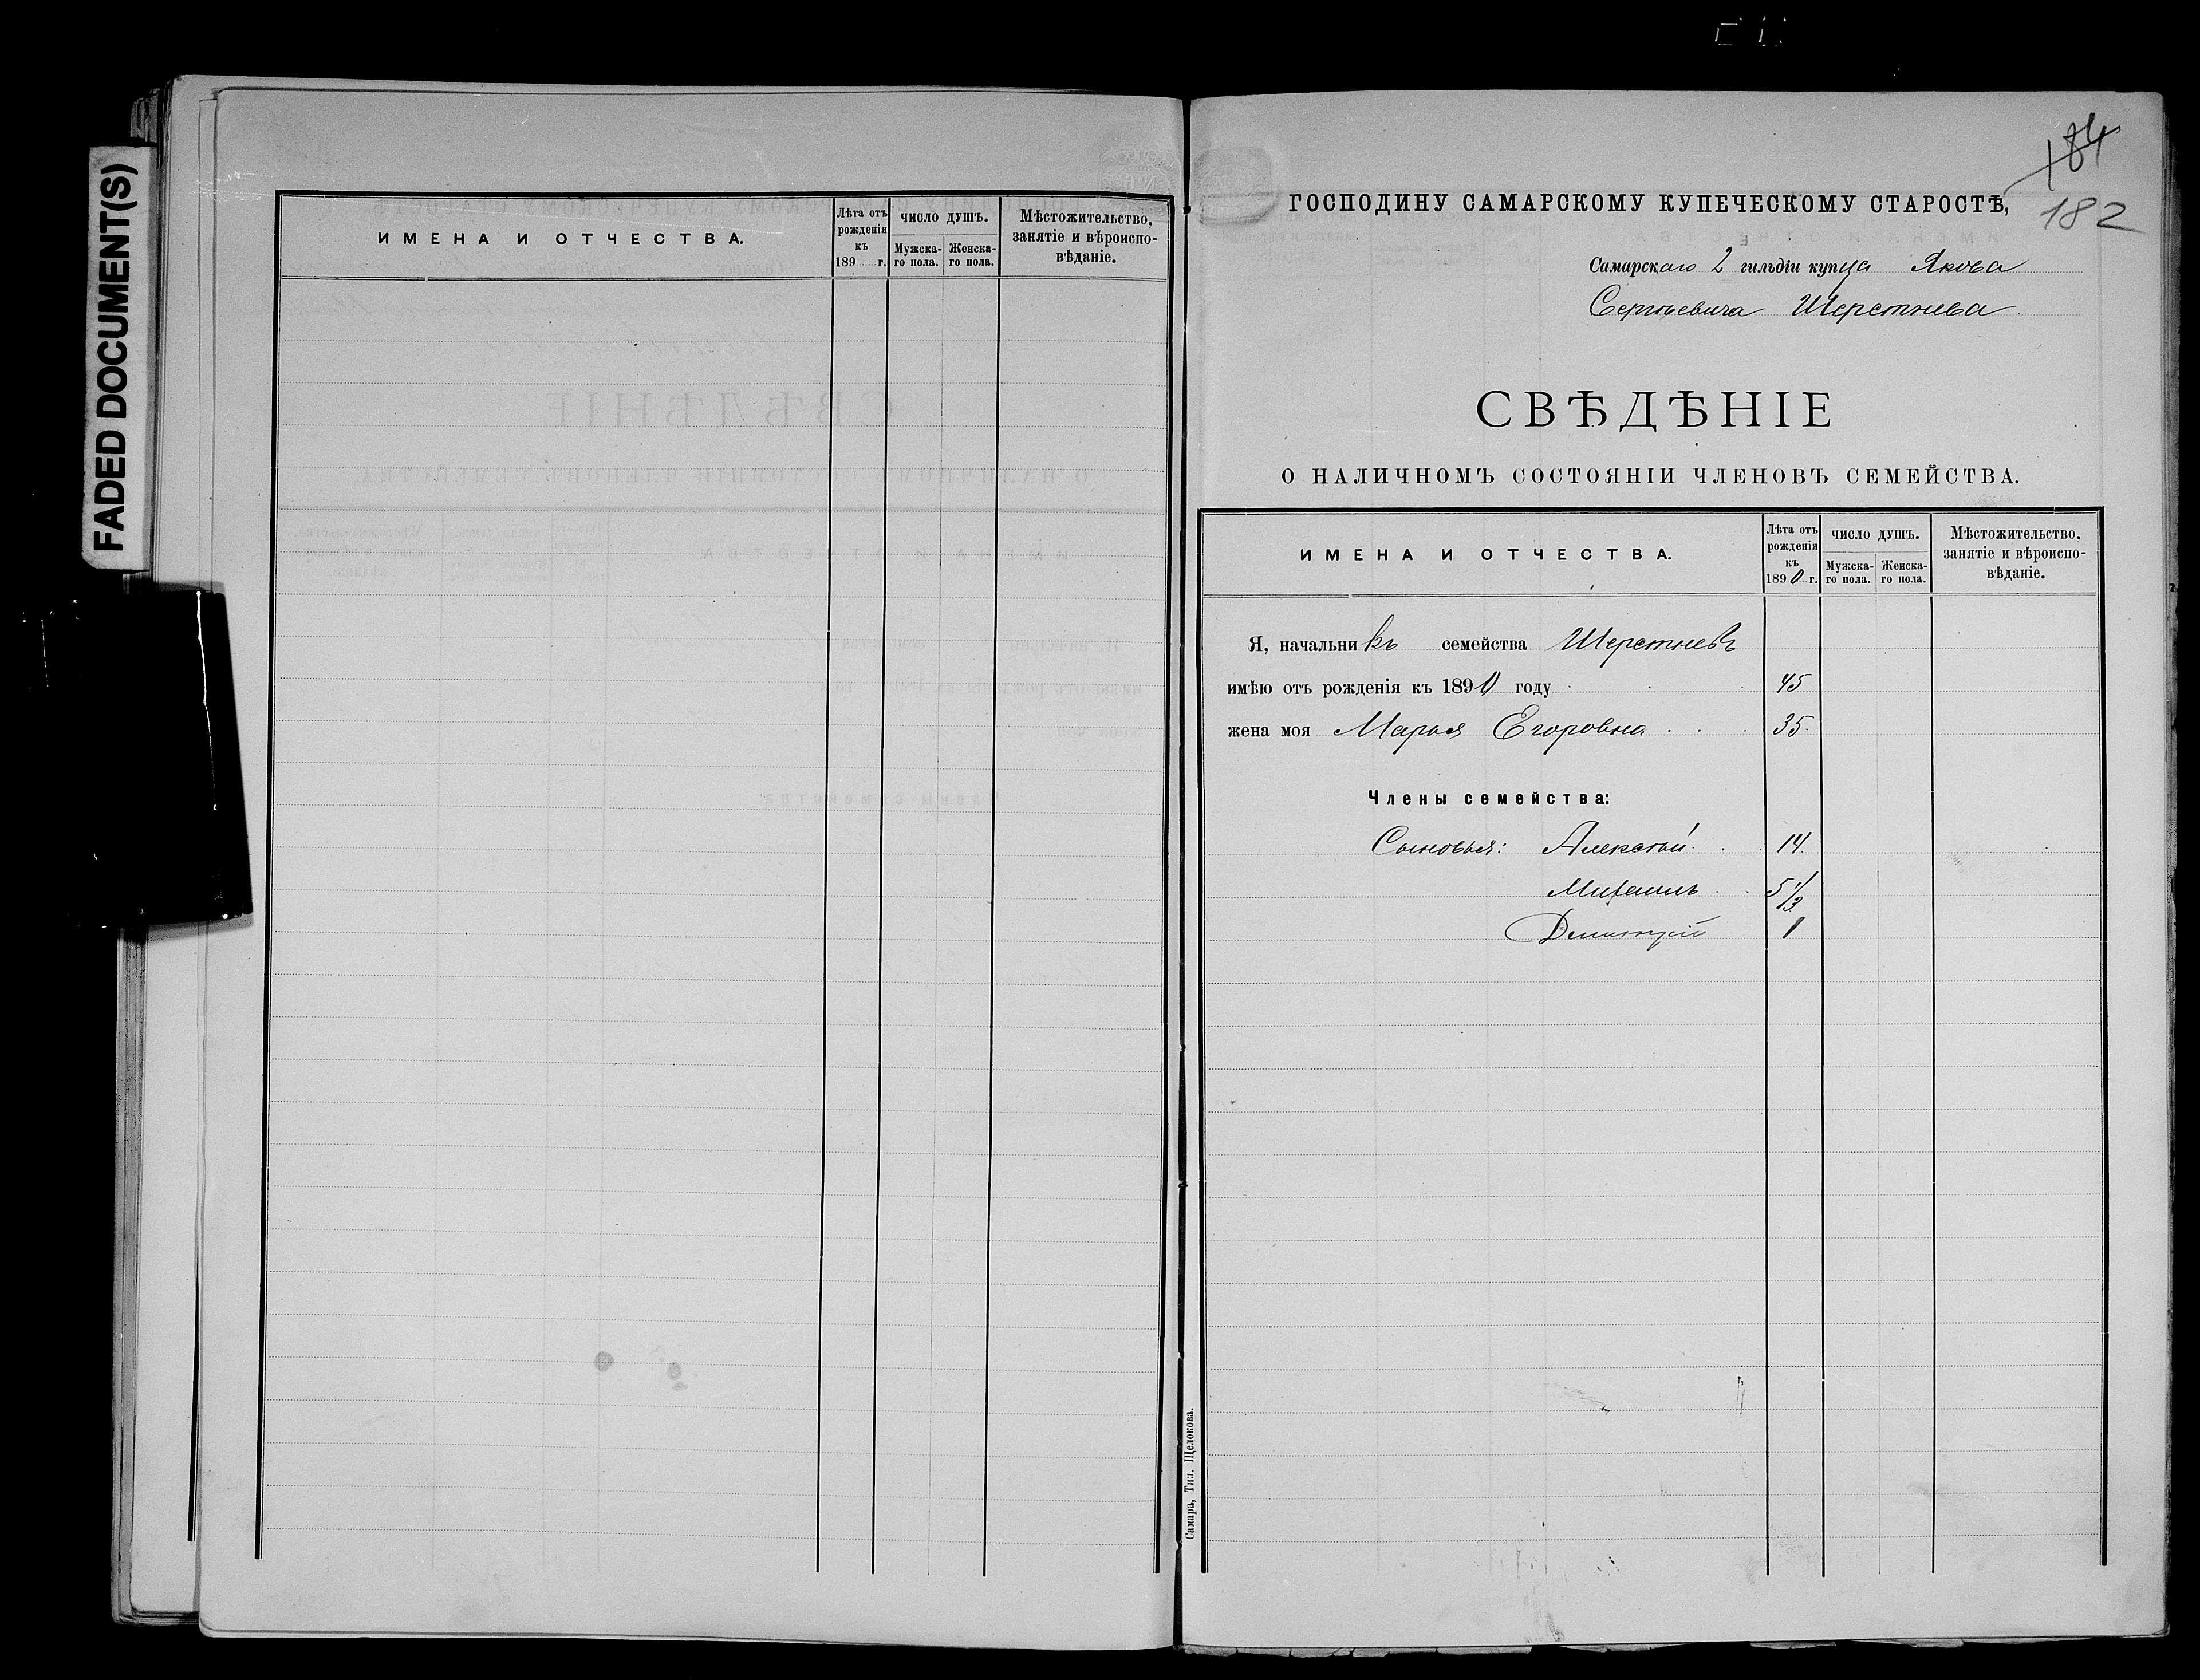 FADED DOCUMENT(S)
ИМЕНА И ОТЧЕСТВА.
Лѣта отъ рожденія къ 189 г.
ЧИСЛО ДУШЪ.
Мужска-го пола.
Женска-го пола.
Мѣстожительство, занятіе и вѣроиспо-вѣданіе.
184
182
ГОСПОДИНУ САМАРСКОМУ КУПЕЧЕСКОМУ СТАРОСТѢ,
Самарскаго 2 гильдіи купца Якова
Сергѣевича Шерстнева
СВѢДѢНІЕ
О НАЛИЧНОМЪ СОСТОЯНІИ ЧЛЕНОВЪ СЕМЕЙСТВА.
ИМЕНА И ОТЧЕСТВА.
Лѣта отъ рожденія къ 1890 г.
ЧИСЛО ДУШЪ.
Мужска-го пола.
Женска-го пола.
Мѣстожительство, занятіе и вѣроиспо-вѣданіе.
Я, начальникъ семейства Шерстневъ
имѣю отъ рожденія къ 1890 году 45
жена моя Марья Егоровна 35
Члены семейства:
Сыновья: Алексѣй 14
Михаилъ 5 1/3
Димитрій 1
Самара, Тип. Щелокова.